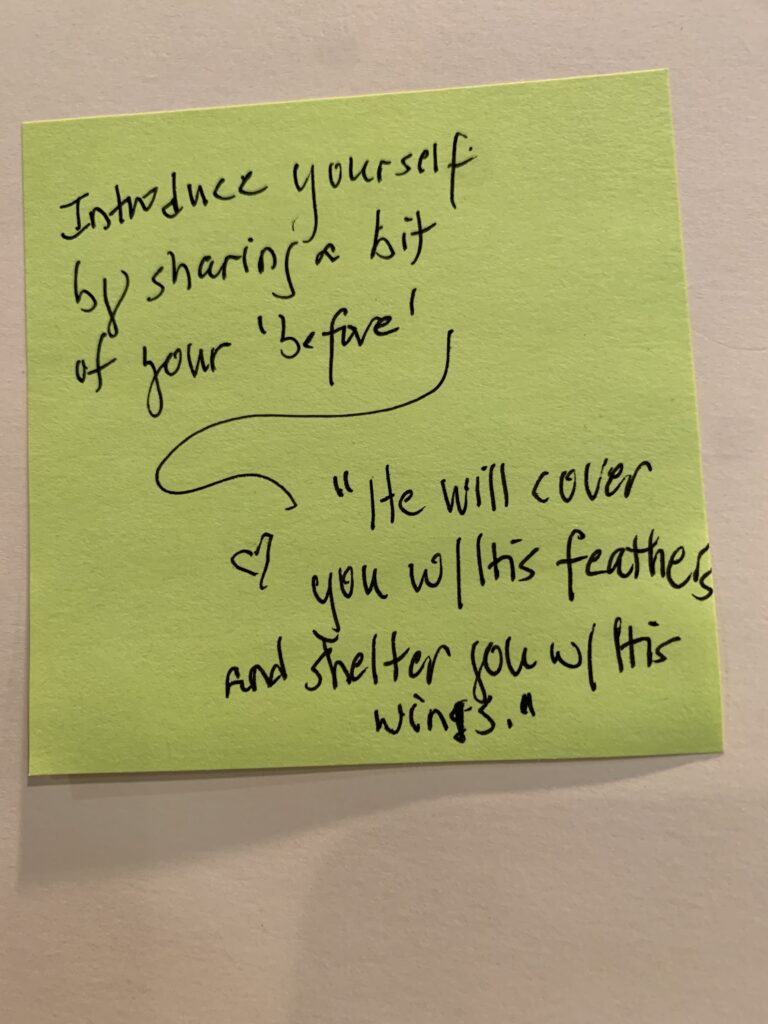 Introduce yourself
by sharing a bit
of your 'before'
"He will cover
you w/ His feathers
and shelter you w/ His
wings."